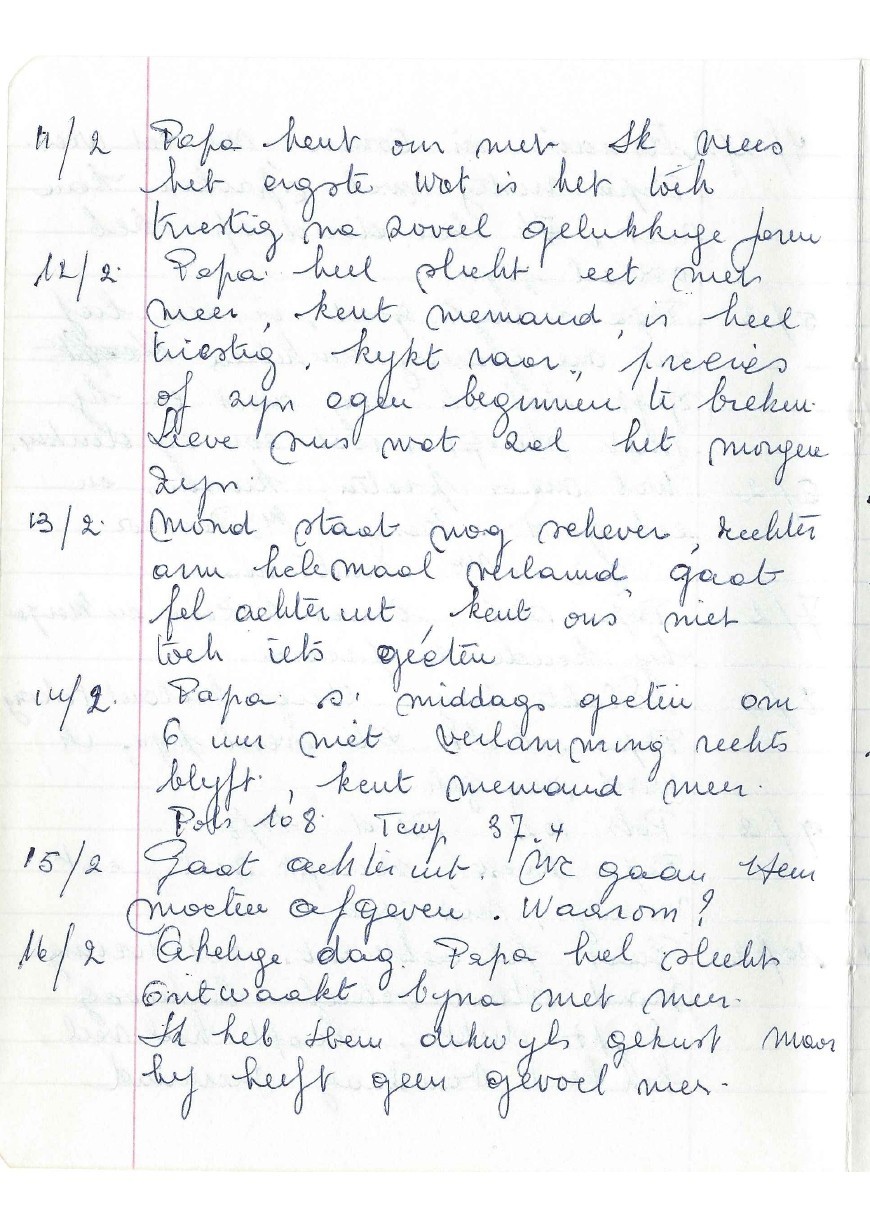 11/2 Papa kent ons niet Ik vrees
het ergste wat is het toch
triestig na zoveel gelukkige jaren
12/2. Papa heel slecht eet niets
meer, kent niemand, is heel
triestig, kykt naar, precies
of zyn ogen beginnen te breken.
Lieve sus wat zal het morgen
zyn
13/2. Mond staat nog schever, rechter
arm helemaal verlamd, gaat
fel achteruit, kent ons niet
toch iets gegeten
14/2. Papa s' middags geeten om
6 uur niet verlamming rechts
blyft, kent niemand meer.
Pols 108 Temp 37.4
15/2 Gaat achteruit. We gaan Hem
moeten afgeven. Waarom?
16/2 Akelige dag. Papa heel slechts
Ontwaakt byna niet meer.
Ik heb Hem dikwyls gekust maar
hy heeft geen gevoel meer.